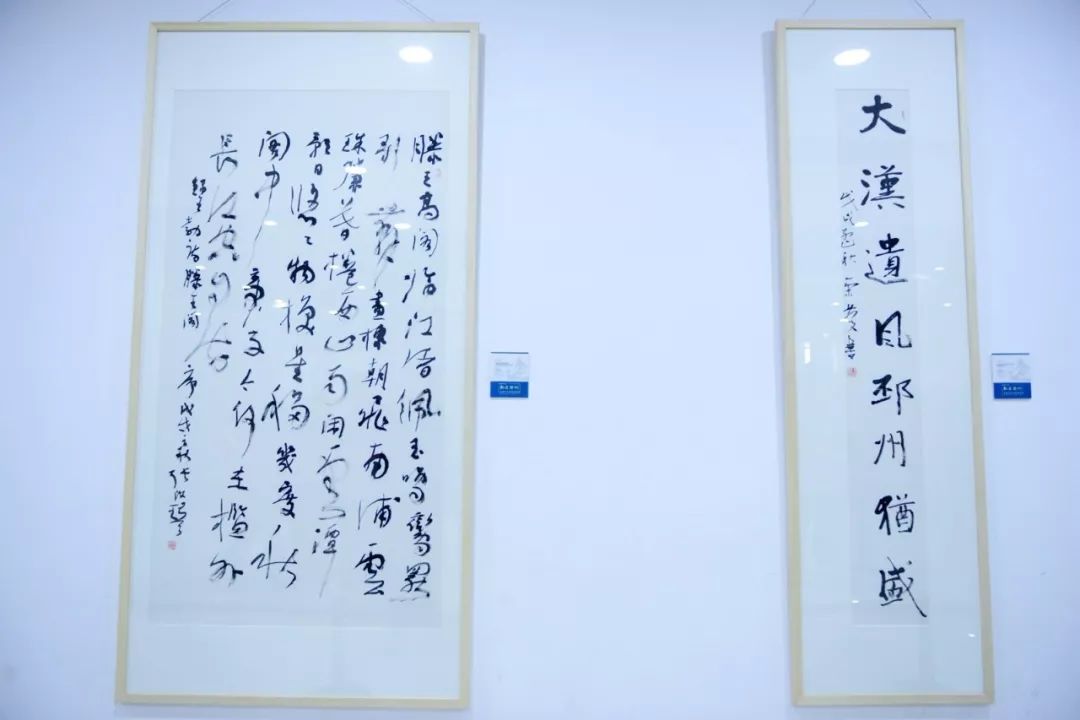 滕王高阁临江渚佩玉鸣鸾罢
歌舞畫棟朝飛南浦雲
珠簾暮捲西山雨闲雲潭
影日悠々物换星移幾度秋
阁中帝子今何在檻外
长江空自流
王勃诗滕王阁序戊戌之秋
大漢遺风邳州猶盛
戊戌秋